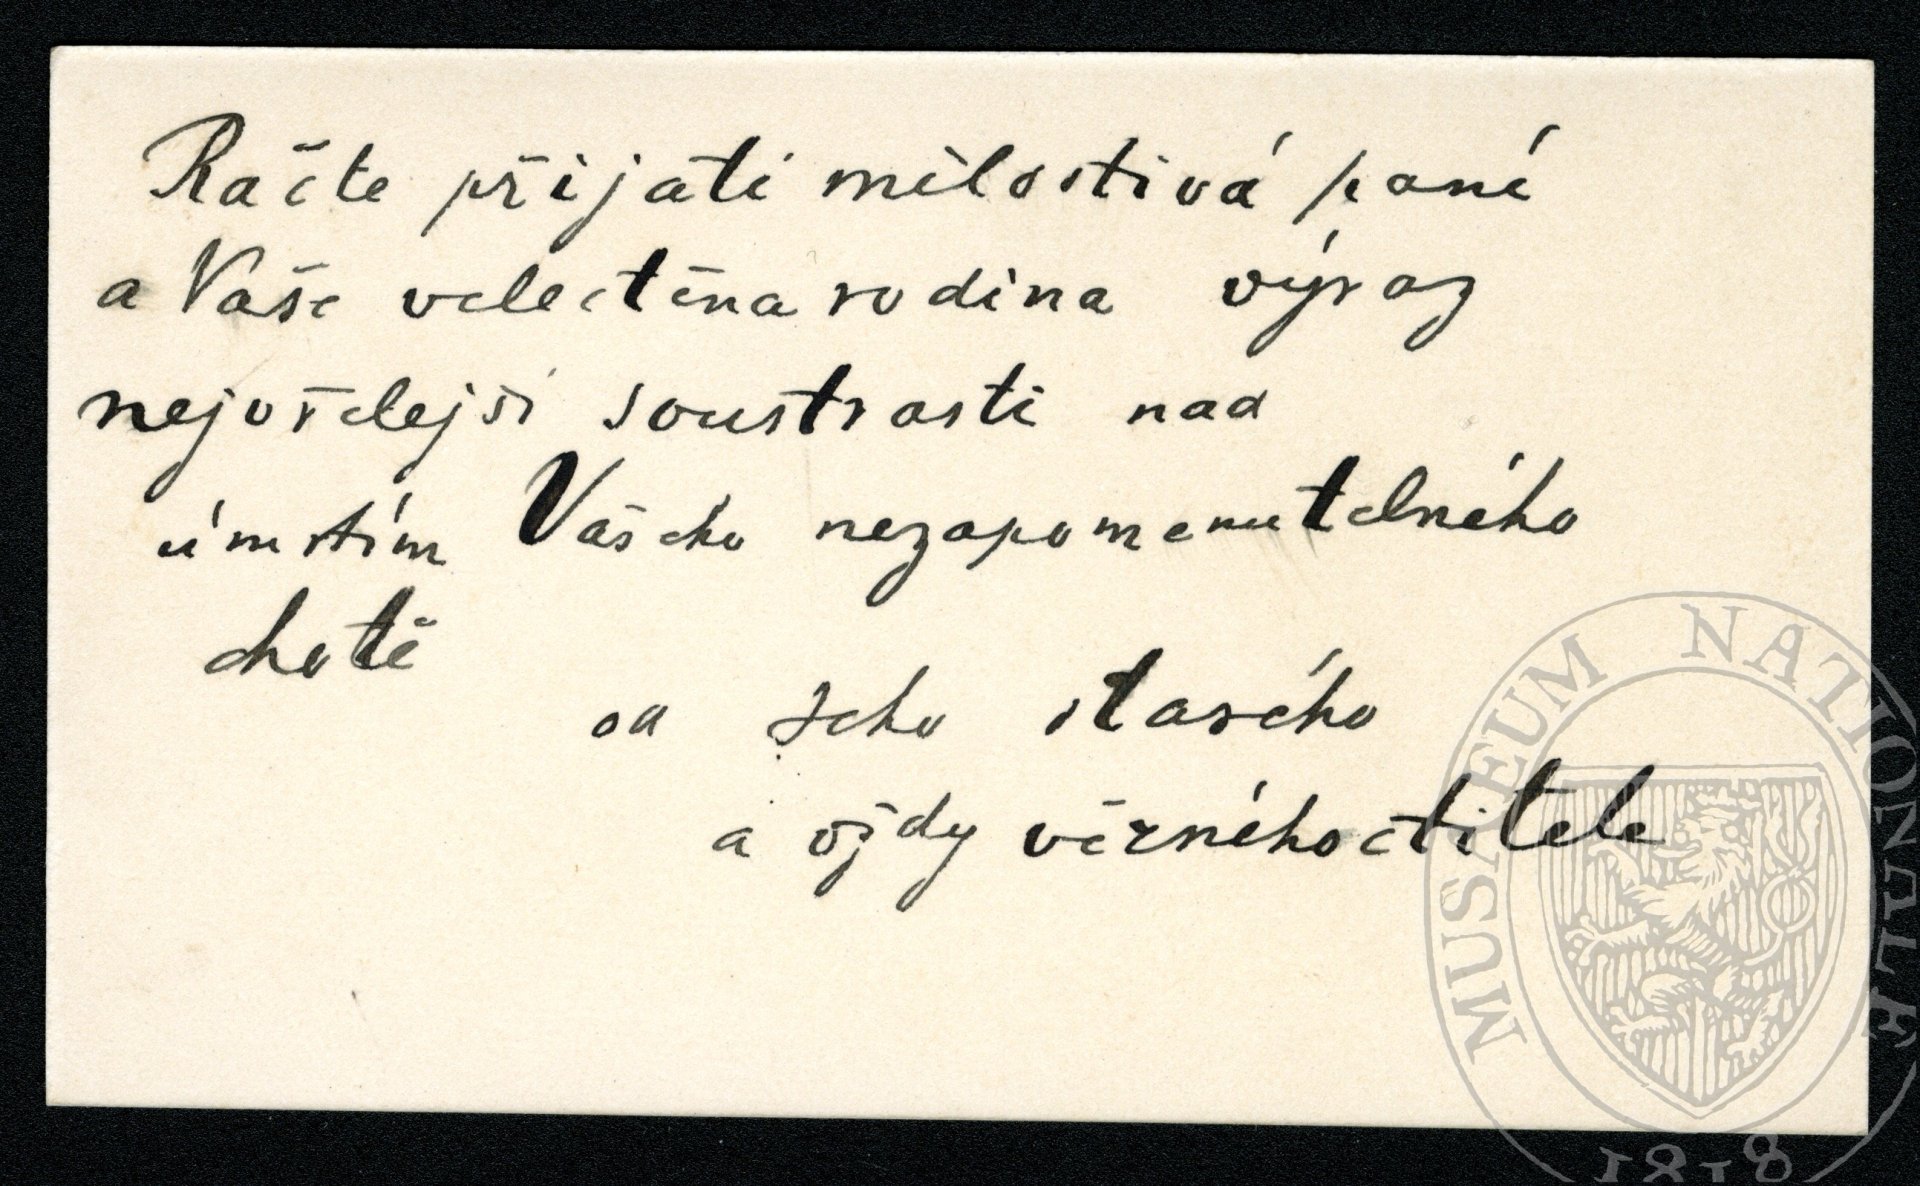 Račte přijati milostivá paní
a Vaše velectěná rodina výraz
nejvřelejší soustrasti nad
úmrtím Vašeho nezapomenutelného
chotě
od Jeho starého
a vždy věrného ctitele
MUSAEUM NATIONALE
1818